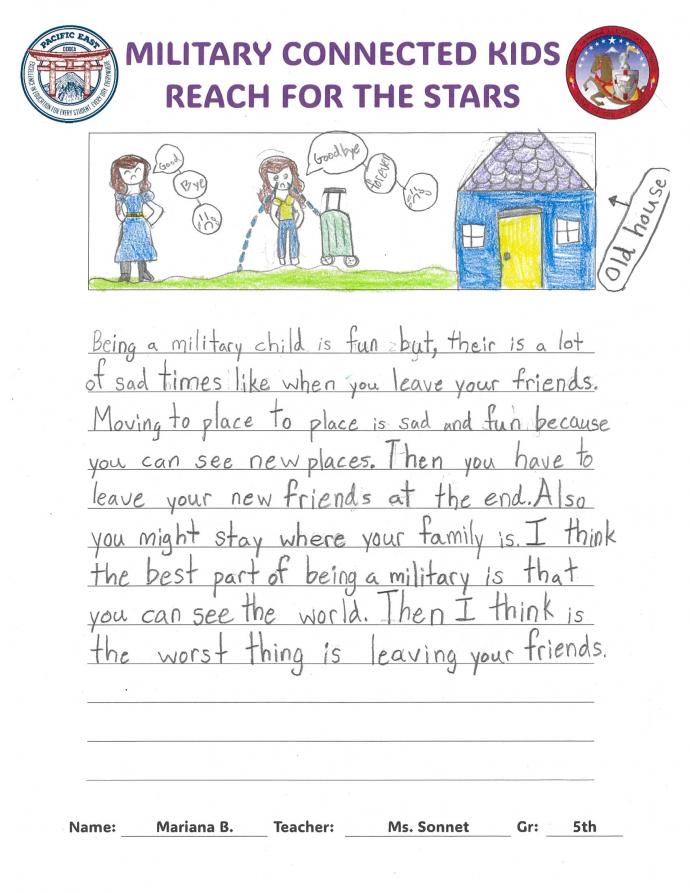 PACIFIC EAST
DODEA
EXCELLENCE IN EDUCATION FOR EVERY STUDENT, EVERY DAY, EVERYWHERE
MILITARY CONNECTED KIDS
REACH FOR THE STARS
Good
Bye
Goodbye
Forever
Old house
Being a military child is fun but, their is a lot
of sad times like when you leave your friends.
Moving to place to place is sad and fun because
you can see new places. Then you have to
leave your new friends at the end. Also
you might stay where your family is. I think
the best part of being a military is that
you can see the world. Then I think is
the worst thing is leaving your friends.
Name: Mariana B. Teacher: Ms. Sonnet Gr: 5th